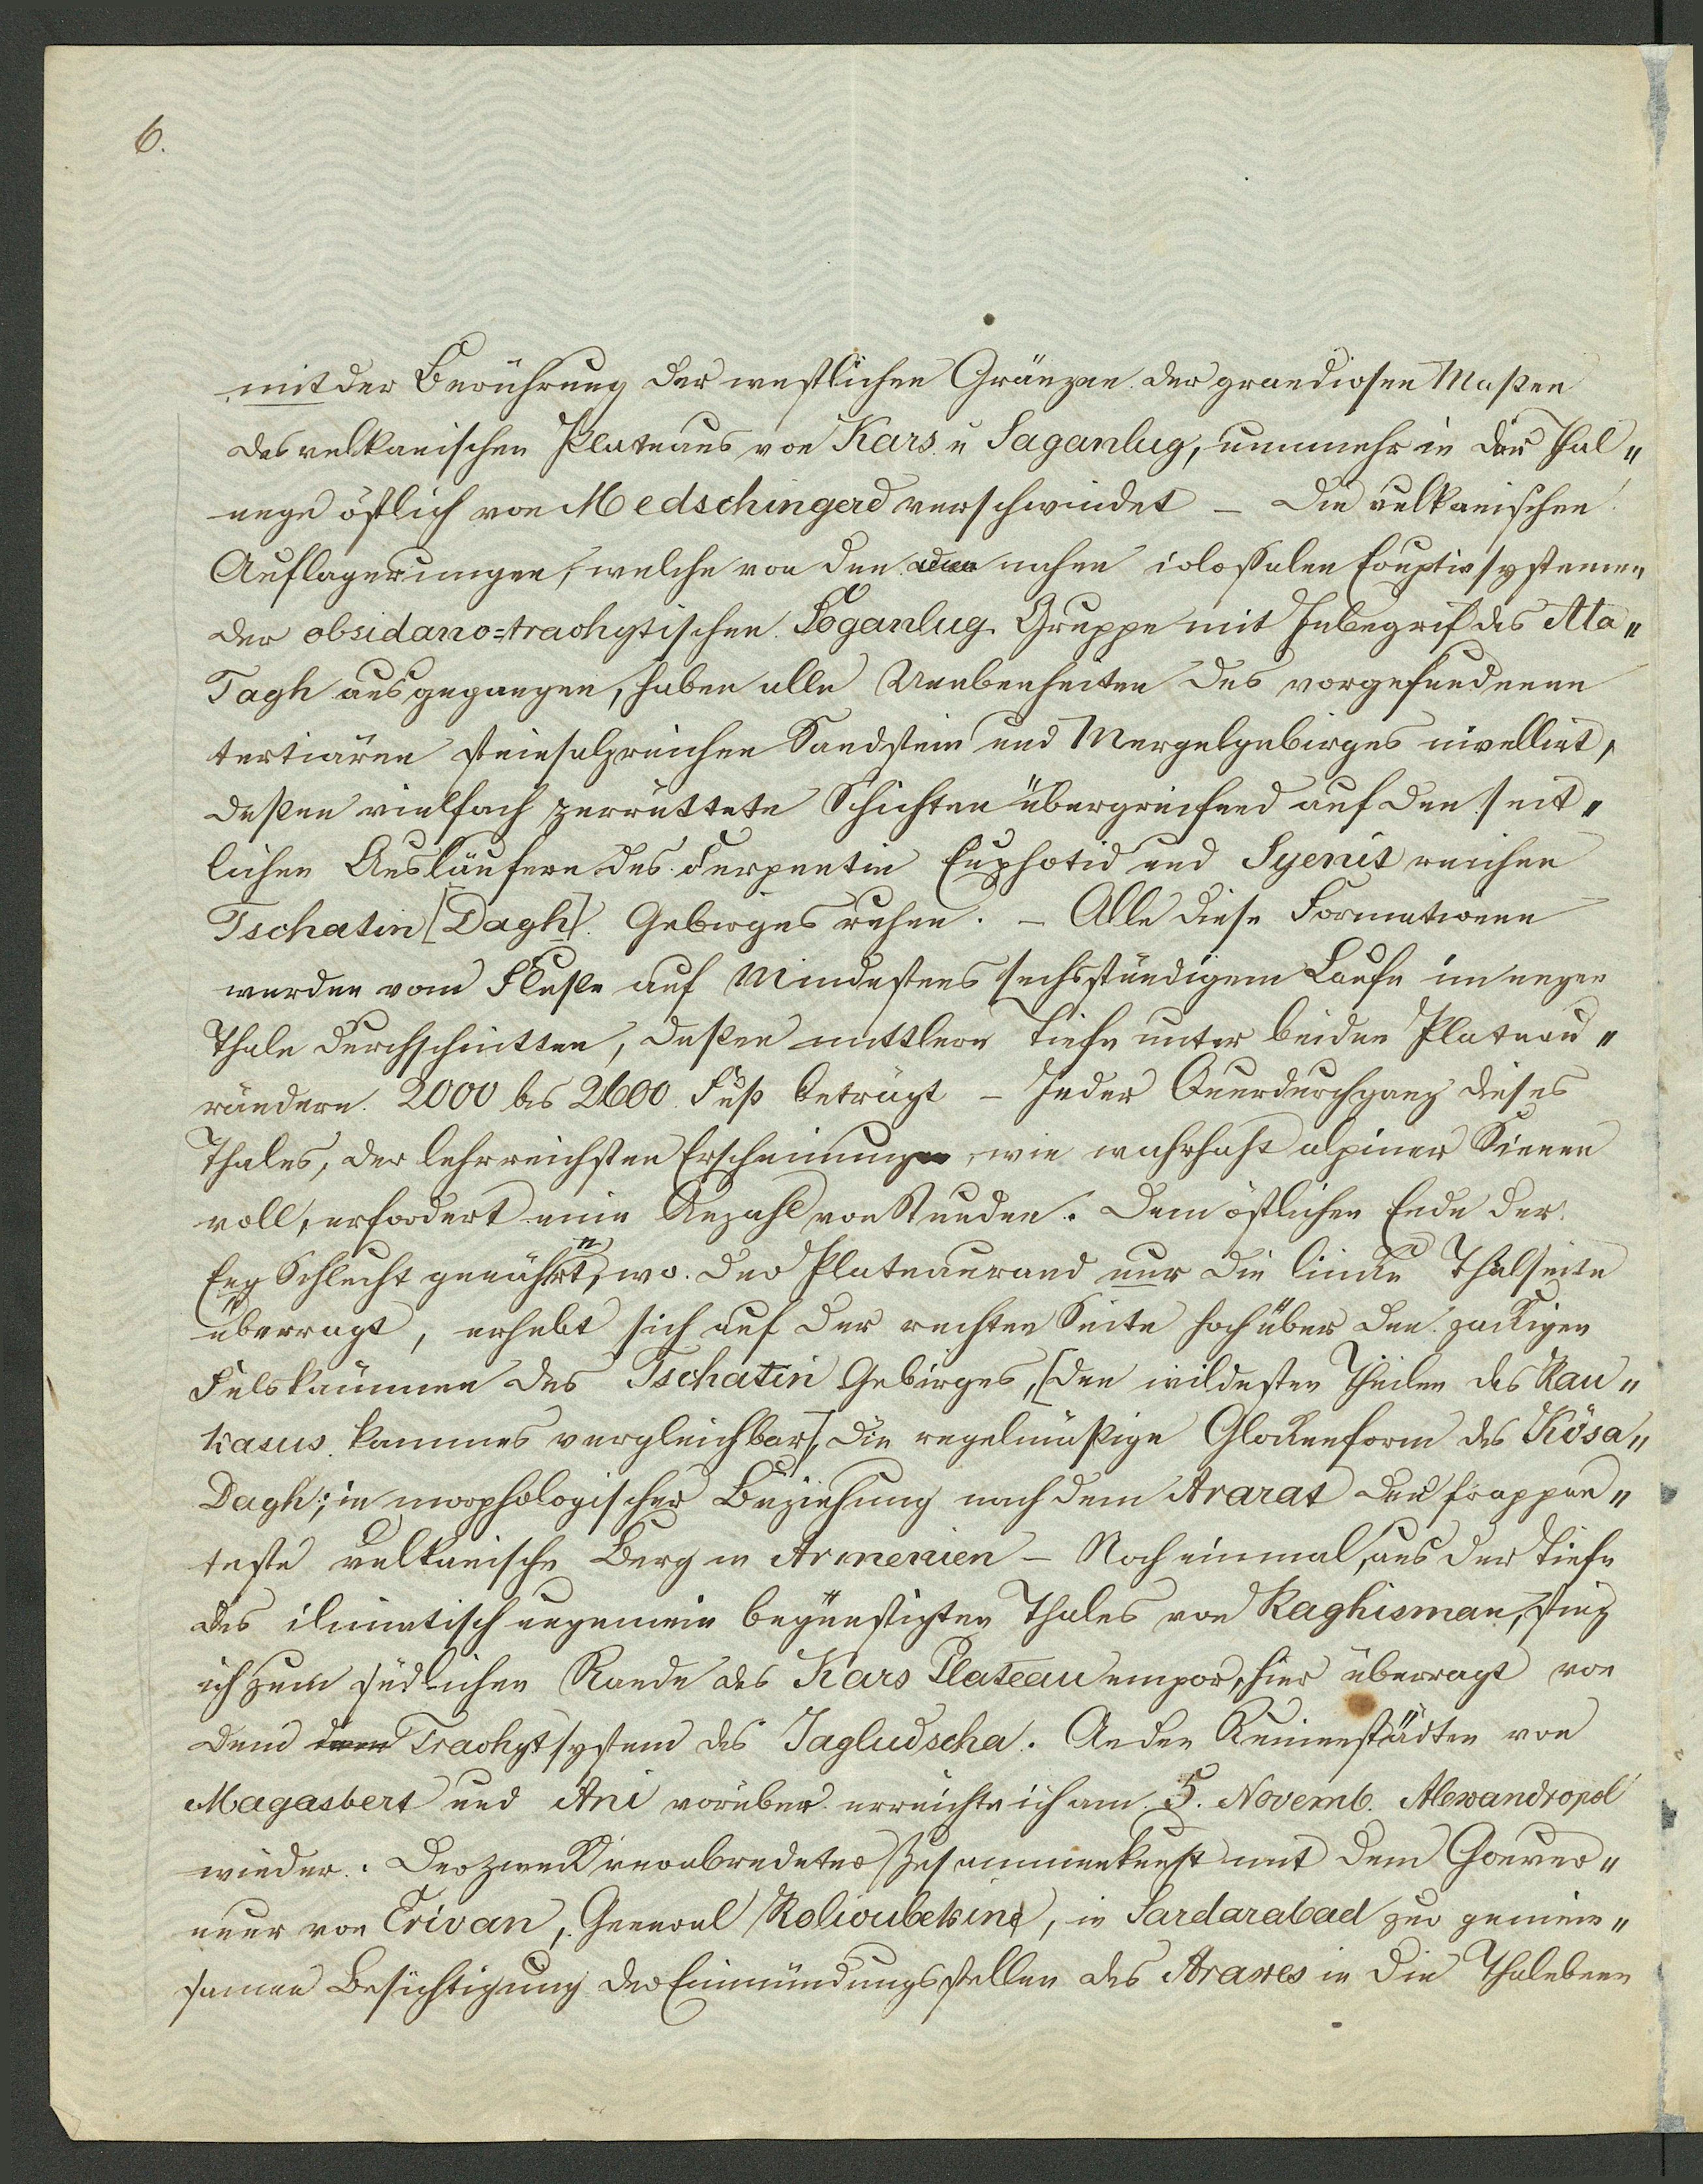 6.
mit der Berührung der westlichen Gränzen der grandiosen Maßen
des vulkanischen Plateaus von Kars u Saganlug, nunmehr in der Thal„
enge östlich von Medschingerd verschwindet – Die vulkanischen
Auflagerungen, welche von den nahen colossalen Eruptivsystemen
der obsidano=trachytischen Soganlug Gruppe mit Inbegrif des Ala„
Tagh ausgegangen, haben alle Unebenheiten des vorgefundenen
tertiären steinsalzreichen Sandstein und Mergelgebirges nivellirt,
deßen vielfach zerrüttete Schichten übergreifend auf den seit„
lichen Ausläufern des Serpentin Euphotid und Syenit reichen
Tschatin [Dagh]. Gebirges ruhen. – Alle diese Formationen
werden vom Fluße auf Mindestens sechsstündigem Laufe im engen
Thale durchschnitten, deßen mittlere Tiefe unter beiden Plateau„
rändern 2000 bis 2600 Fuß beträgt – Jeder Querdurchgang dieses
Thales, der lehrreichsten Erscheinungen, wie wahrhaft alpiner Scenen
voll, erfordert eine Anzahl von Stunden. Dem östlichen Ende der
Eng Schlucht genähert, wo der Plateaurand nur die linke Thalseite
überragt, erhebt sich auf der rechten Seite hoch über den zackigen
Felskämmen des Tschatin Gebirges, [den wildesten Theilen des Kau„
kasus kammes vergleichbar], die regelmäßige Glockenform des Kösa„
Dagh; in morphologischer Beziehung nach dem Ararat der frappan„
teste vulkanische Berg in Armenien – Noch einmal, aus der Tiefe
des climatisch ungemein begünstigten Thales von Kaghisman, stieg
ich zum südlichen Rande des Kars Plateau empor, hier überragt von
dem Trachytsystem des Jagludscha. An den Ruinenstädten von
Magasbert und Ani vorüber erreichte ich am 5. Novemb. Alexandropol
wieder. Der Zweck verabredeter Zusammenkunft mit dem Gouver„
neur von Erivan, General Kolioubekine, in Sardarabad zur gemein„
samen Besichtigung der Einmündungsstellen des Araxes in die Thalebene